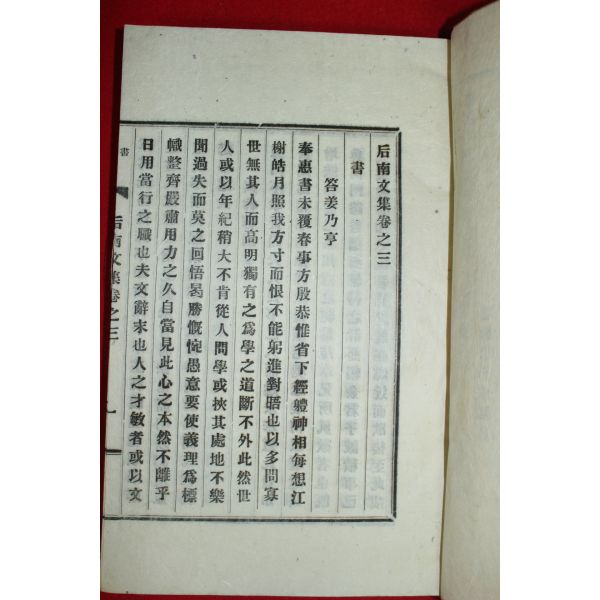 后南文集卷之三
書
答姜乃亨
奉惠書未覆春事方殷恭惟省下經軆神相每想江
榭皓月照我方寸而恨不能躬進對晤也以多問寡
世無其人而高明獨有之為學之道斷不外此然世
人或以年紀稍大不肯從人問學或挾其處地不樂
聞過失而莫之回悟曷勝慨惋愚意要使義理為標
幟整齊嚴肅用力之久自當見此心之本然不離乎
日用當行之職也夫文辭末也人之才敏者或以文
書
后南文集卷之三